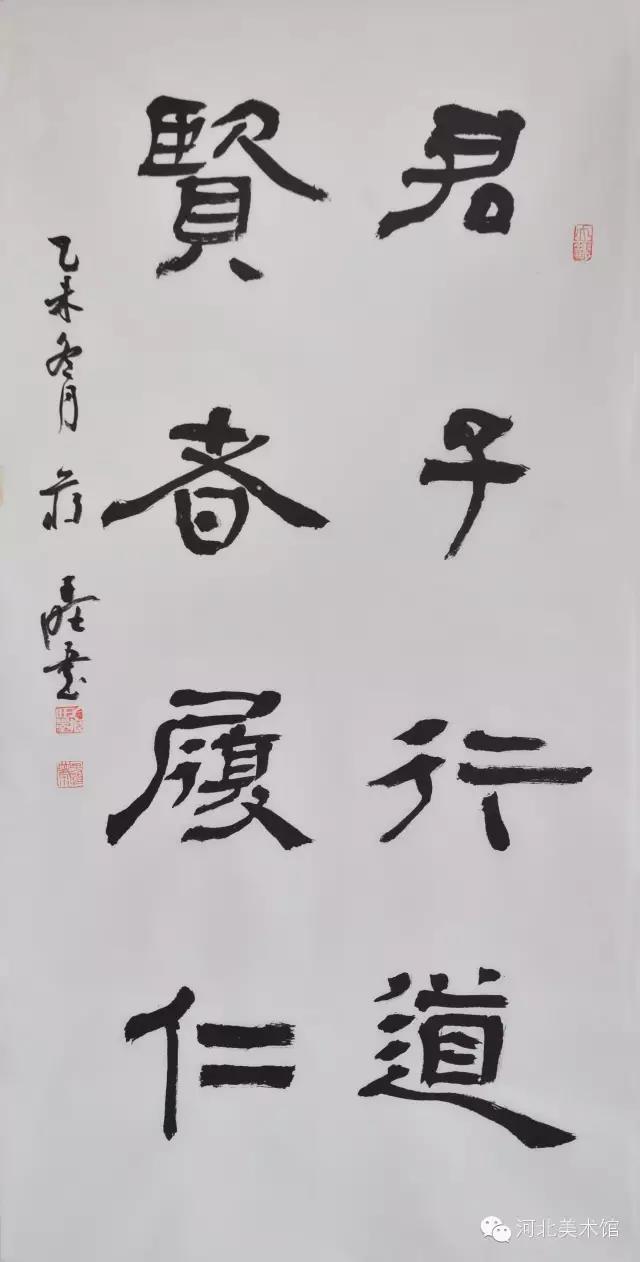 君子行道
賢者履仁
乙未冬月
書
河北美术馆